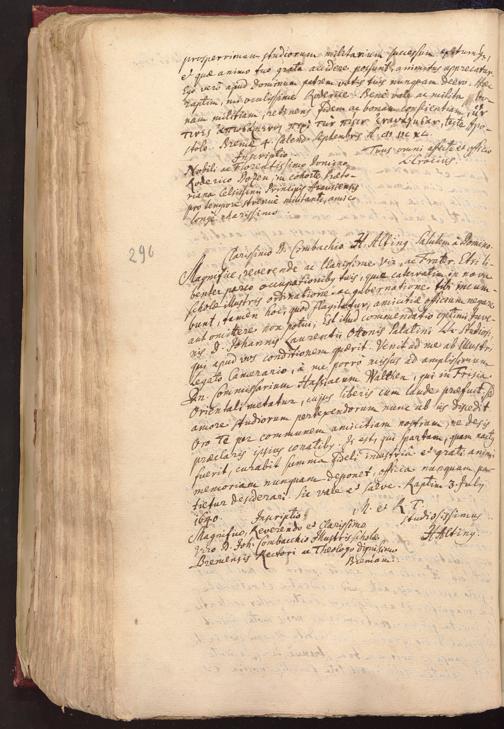 prosperrimum studiorum militarium successum
et quæ animo tuo grata accidere possunt, animitus apprecatur
Ego vero apud Dominum patrem votis tuis nunquam deero. Hæc
raptim, mi oculissime Roderice. Bene vale ac milita bo-
nam militiam, retinens fidem ac bonam conscientiam,
teste Apo-
stolo. Bremæ 4. Calend. Septembris
Tuus omni affectu et officio
Inscriptio.
Nobili ac Florentissimo Domino
Roderico in cohorte Præto-
riana Celsissimi Principis
pro tempore strenue militanti, amico
longe charissimo.
296
Clarissimo D. Combachio H. Alting Salutem à Domino.
Magnifice, reverende ac Clarissime Vir, ac Frater. Etsi li-
benter parco occupationibus tuis, quæ catervatim in novæ
scholæ Illustris ordinatione ac gubernatione tibi incum-
bunt, tamen hoc, quod flagitatur, amicitiæ officium negare
aut omittere non potui. Est illud commendatio optimi Juve-
nis D. Johannis Laurentii Otonis Palatini Ll. Studiosi,
qui apud vos conditionem quærit. Venit ad me ab Illustri
Legato Camerario, à me porro missus ad amplissimum
Dn. Commissarium Hassiacum qui in Frisia
Orientali metatur, cujus liberis cum laude præfuit, sed
amore studiorum pertexendorum nunc ab iis discedit
Oro Te per communem amicitiam nostram, ne desis
præclaris ipsius conatibus. Is est, qui spartam, quam nactus
fuerit, curabit summa fidelique industria et grati animi
memoriam nunquam deponet, officia nunquam pa-
tietur desiderari. Sic vale et salve. Raptim 3. July
1640.
M. et R. T.
Inscriptio
studiosissimus
Magnifico, Reverendo et Clarissimo
H. Alting.
Viro D. Joh. Combachio Illustris scholæ
Bremensis Rectori ac Theologo dignissimo
Bremam.